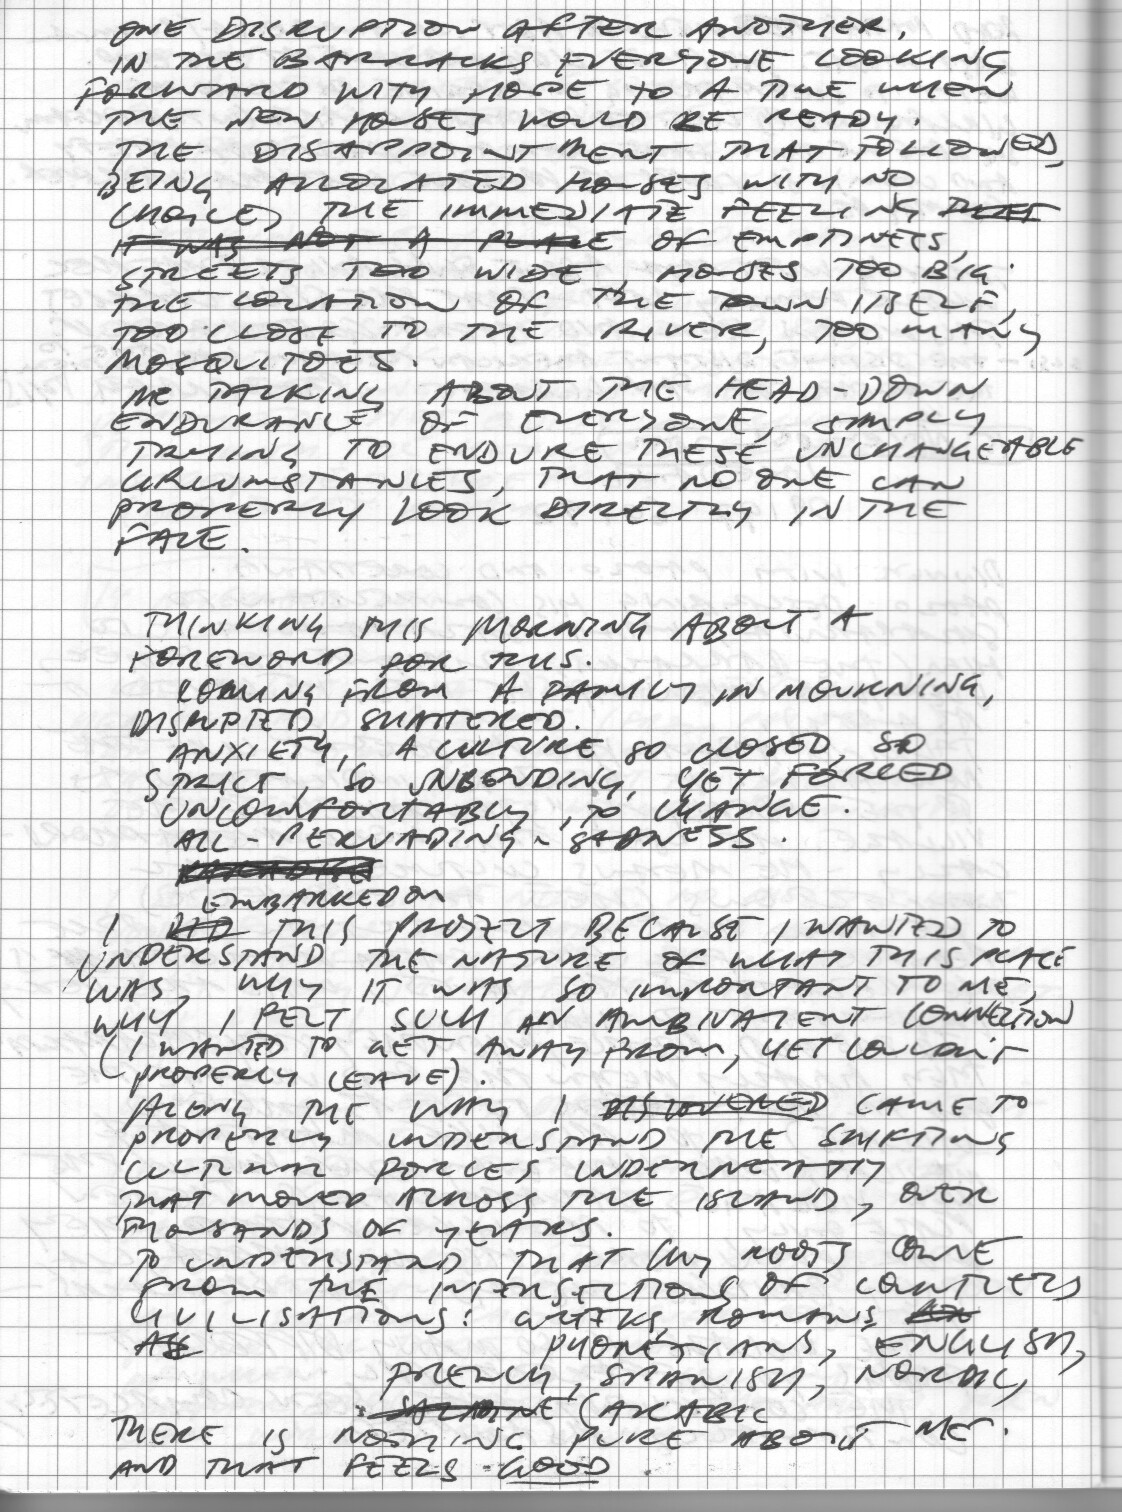 ONE DISRUPTION AFTER ANOTHER.
IN THE BARRACKS EVERYONE LOOKING
FORWARD WITH HOPE TO A TIME WHEN
THE NEW HOUSES WOULD BE READY.
THE DISAPPOINTMENT THAT FOLLOWED,
BEING ALLOCATED HOUSES WITH NO
CHOICE, THE IMMEDIATE FEELING THAT
IT WAS NOT A PLACE OF EMPTINESS,
STREETS TOO WIDE, HOUSES TOO BIG.
THE LOCATION OF THE TOWN ITSELF,
TOO CLOSE TO THE RIVER, TOO MANY
MOSQUITOES.
ME TALKING ABOUT THE HEAD-DOWN
ENDURANCE OF EVERYONE, SIMPLY
TRYING TO ENDURE THESE UNCHANGEABLE
CIRCUMSTANCES, THAT NO ONE CAN
PROPERLY LOOK DIRECTLY IN THE
FACE.
THINKING THIS MORNING ABOUT A
FOREWORD FOR THIS.
COMING FROM A FAMILY IN MOURNING,
DISRUPTED, SHATTERED.
ANXIETY, A CULTURE SO CLOSED, SO
STRICT, SO UNBENDING, YET FORCED
UNCOMFORTABLY, TO CHANGE.
ALL-PERVADING-SADNESS.
EMBARKED ON
I DID THIS PROJECT BECAUSE I WANTED TO
UNDERSTAND THE NATURE OF WHAT THIS PLACE
WAS, WHY IT WAS SO IMPORTANT TO ME,
WHY I FELT SUCH AN AMBIVALENT CONNECTION
(I WANTED TO GET AWAY FROM, YET COULDN'T
PROPERLY LEAVE).
ALONG THE WAY I DISCOVERED CAME TO
PROPERLY UNDERSTAND THE SHIFTING
CULTURAL FORCES UNDERNEATH
THAT MOVED ACROSS THE ISLAND, OVER
THOUSANDS OF YEARS.
TO UNDERSTAND THAT MY ROOTS COME
FROM THE INTERSECTIONS OF COUNTLESS
CIVILISATIONS: GREEKS, ROMANS,
PHONETIANS, ENGLISH,
FRENCH, SPANISH, NORDIC,
(ARABIC
THERE IS NOTHING PURE ABOUT ME.
AND THAT FEELS GOOD.